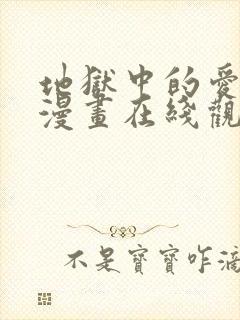 地獄中的愛
漫畫在綫觀
不是寶寶咋滴